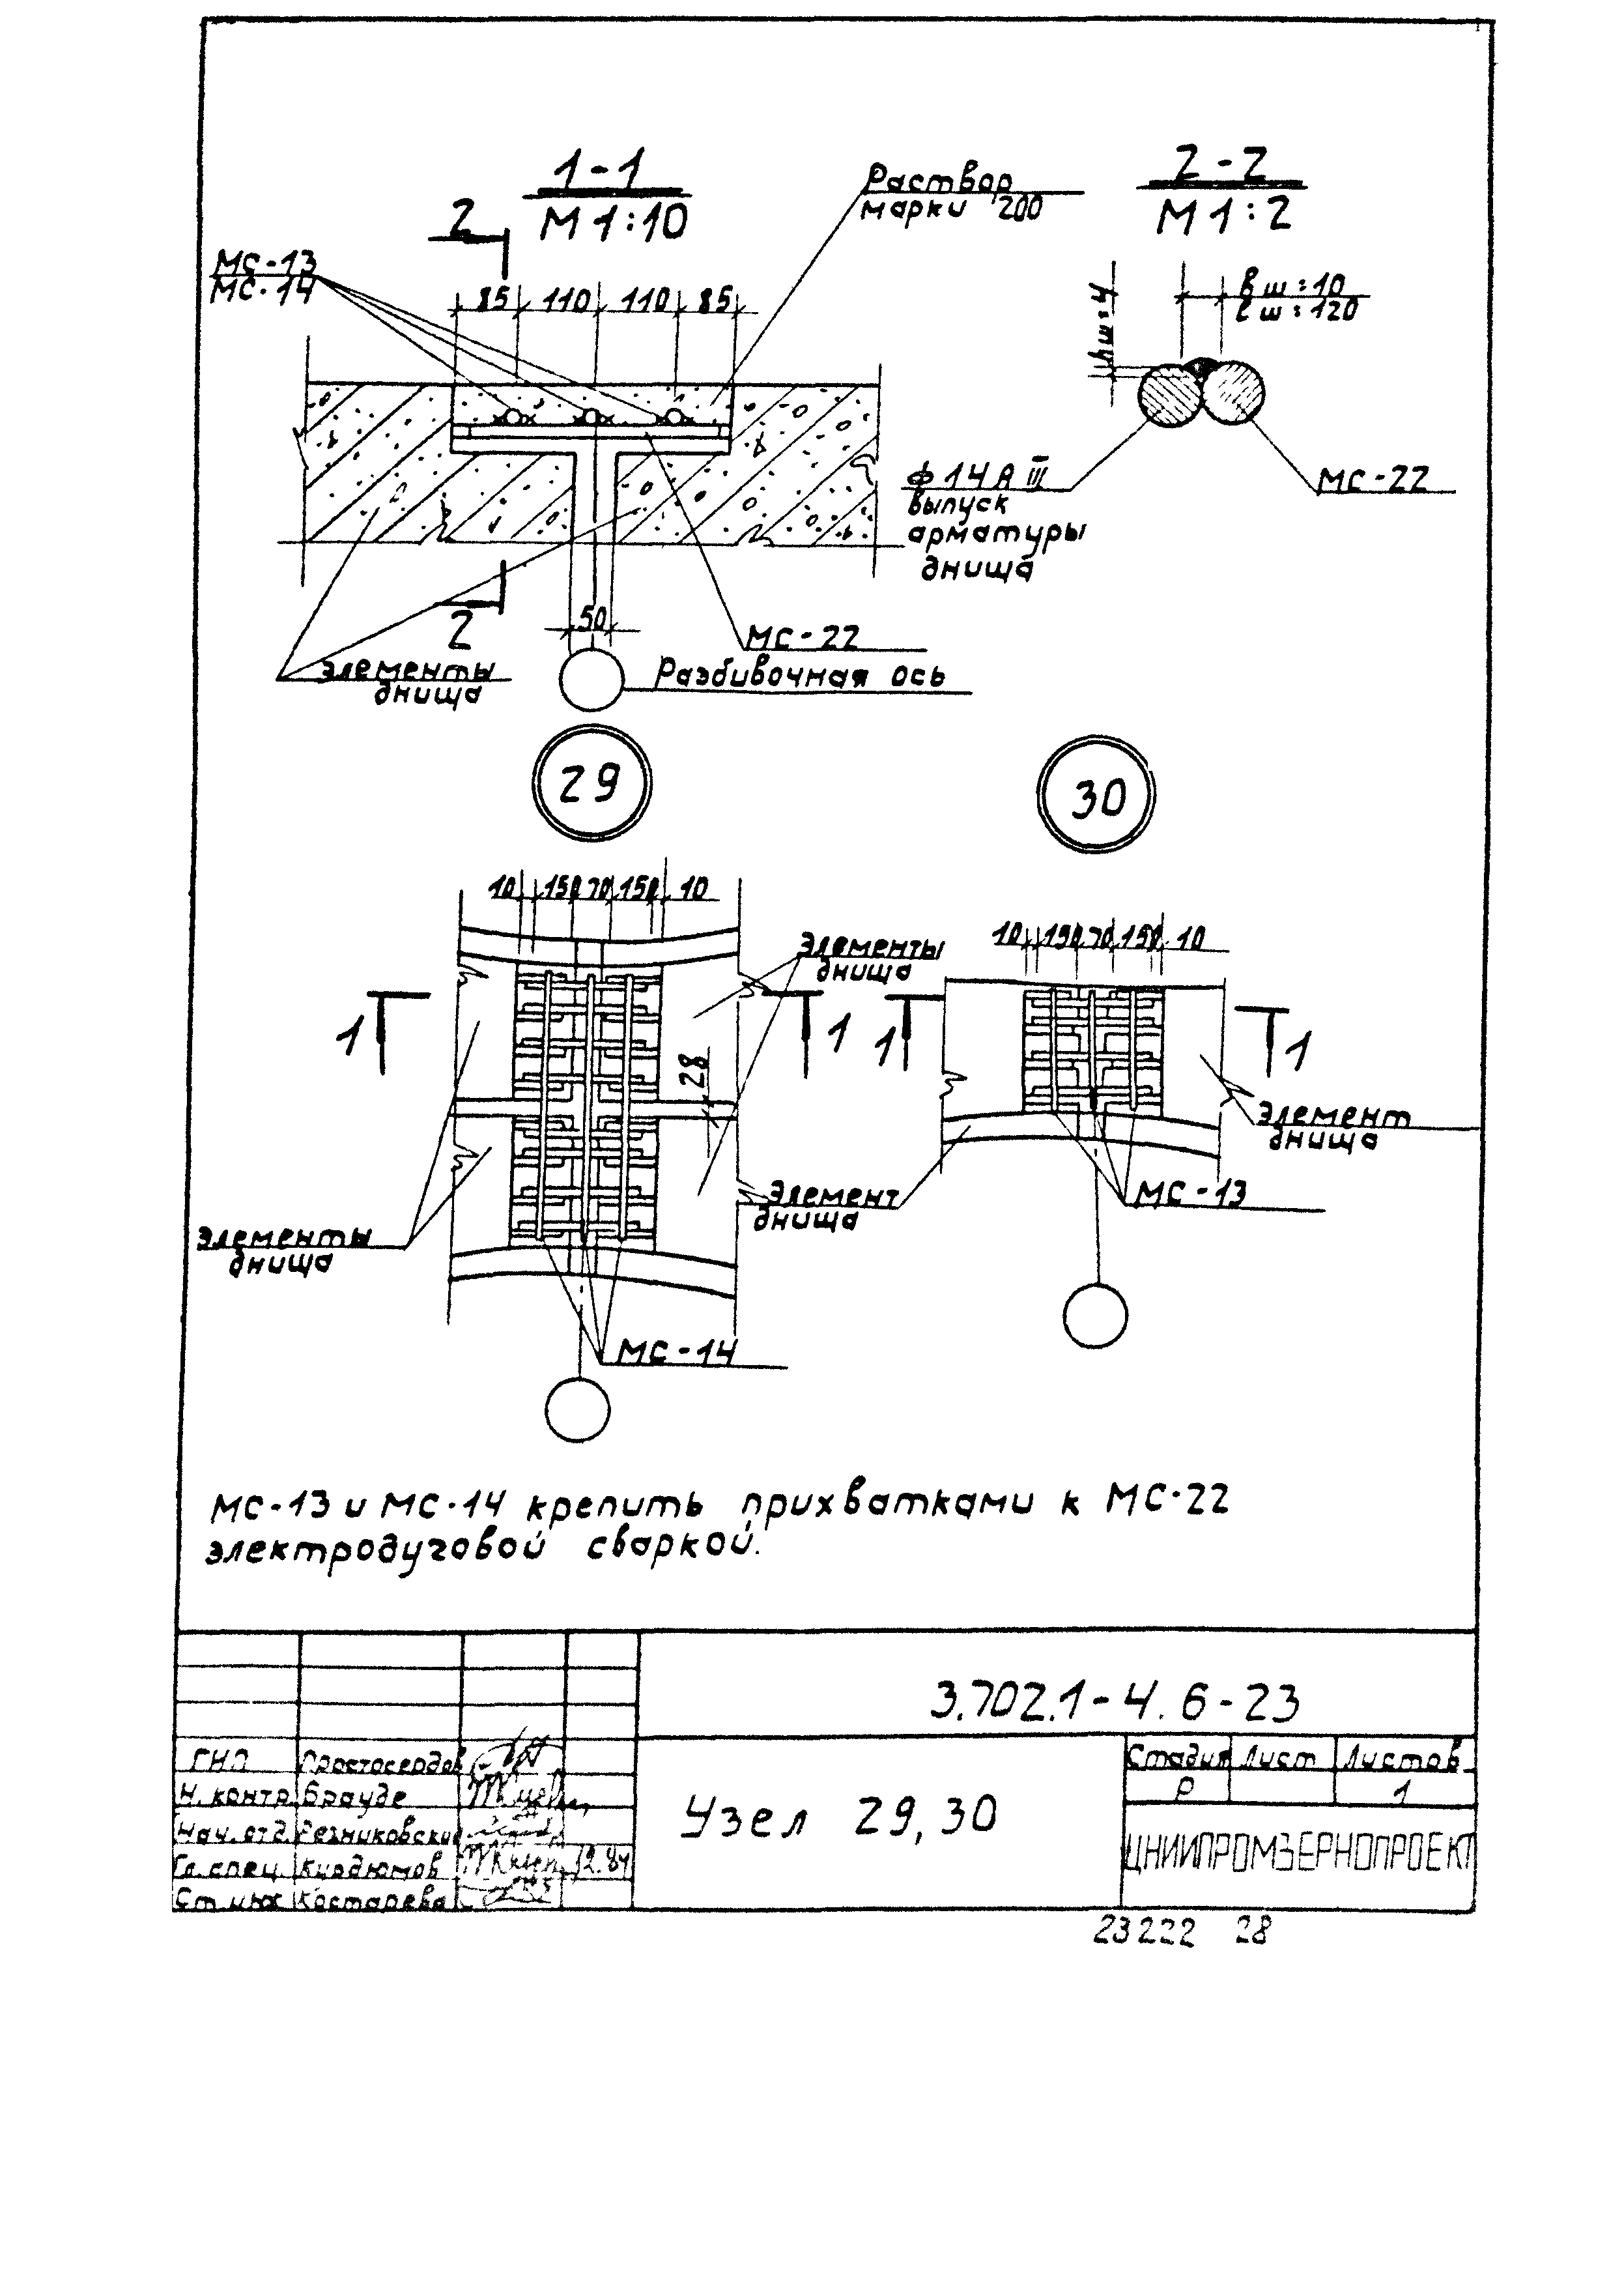 1-1
М 1:10
2
МС-13
МС-14
85 110 110 85
Раствор
марки 200
2-2
М 1:2
hш=4
bш=10
ℓш=120
ф14АIII
выпуск
арматуры
днища
МС-22
2
50
МС-22
Разбивочная ось
Элементы
днища
29
30
10 150 70 150 10
10 150 70 150 10
Элементы
днища
1
1
28
1
1
Элемент
днища
Элемент
днища
МС-13
Элементы
днища
МС-14
МС-13 и МС-14 крепить прихватками к МС-22
электродуговой сваркой.
3.702.1-4.6-23
ГИП Простосердов
Н. контр. Брауде
Нач. отд. Резниковский
Гл. спец. Курдюмов 12.84
Ст. инж Костарева
Узел 29,30
Стадия Лист Листов
Р 1
ЦНИИПРОМЗЕРНОПРОЕКТ
23222 28